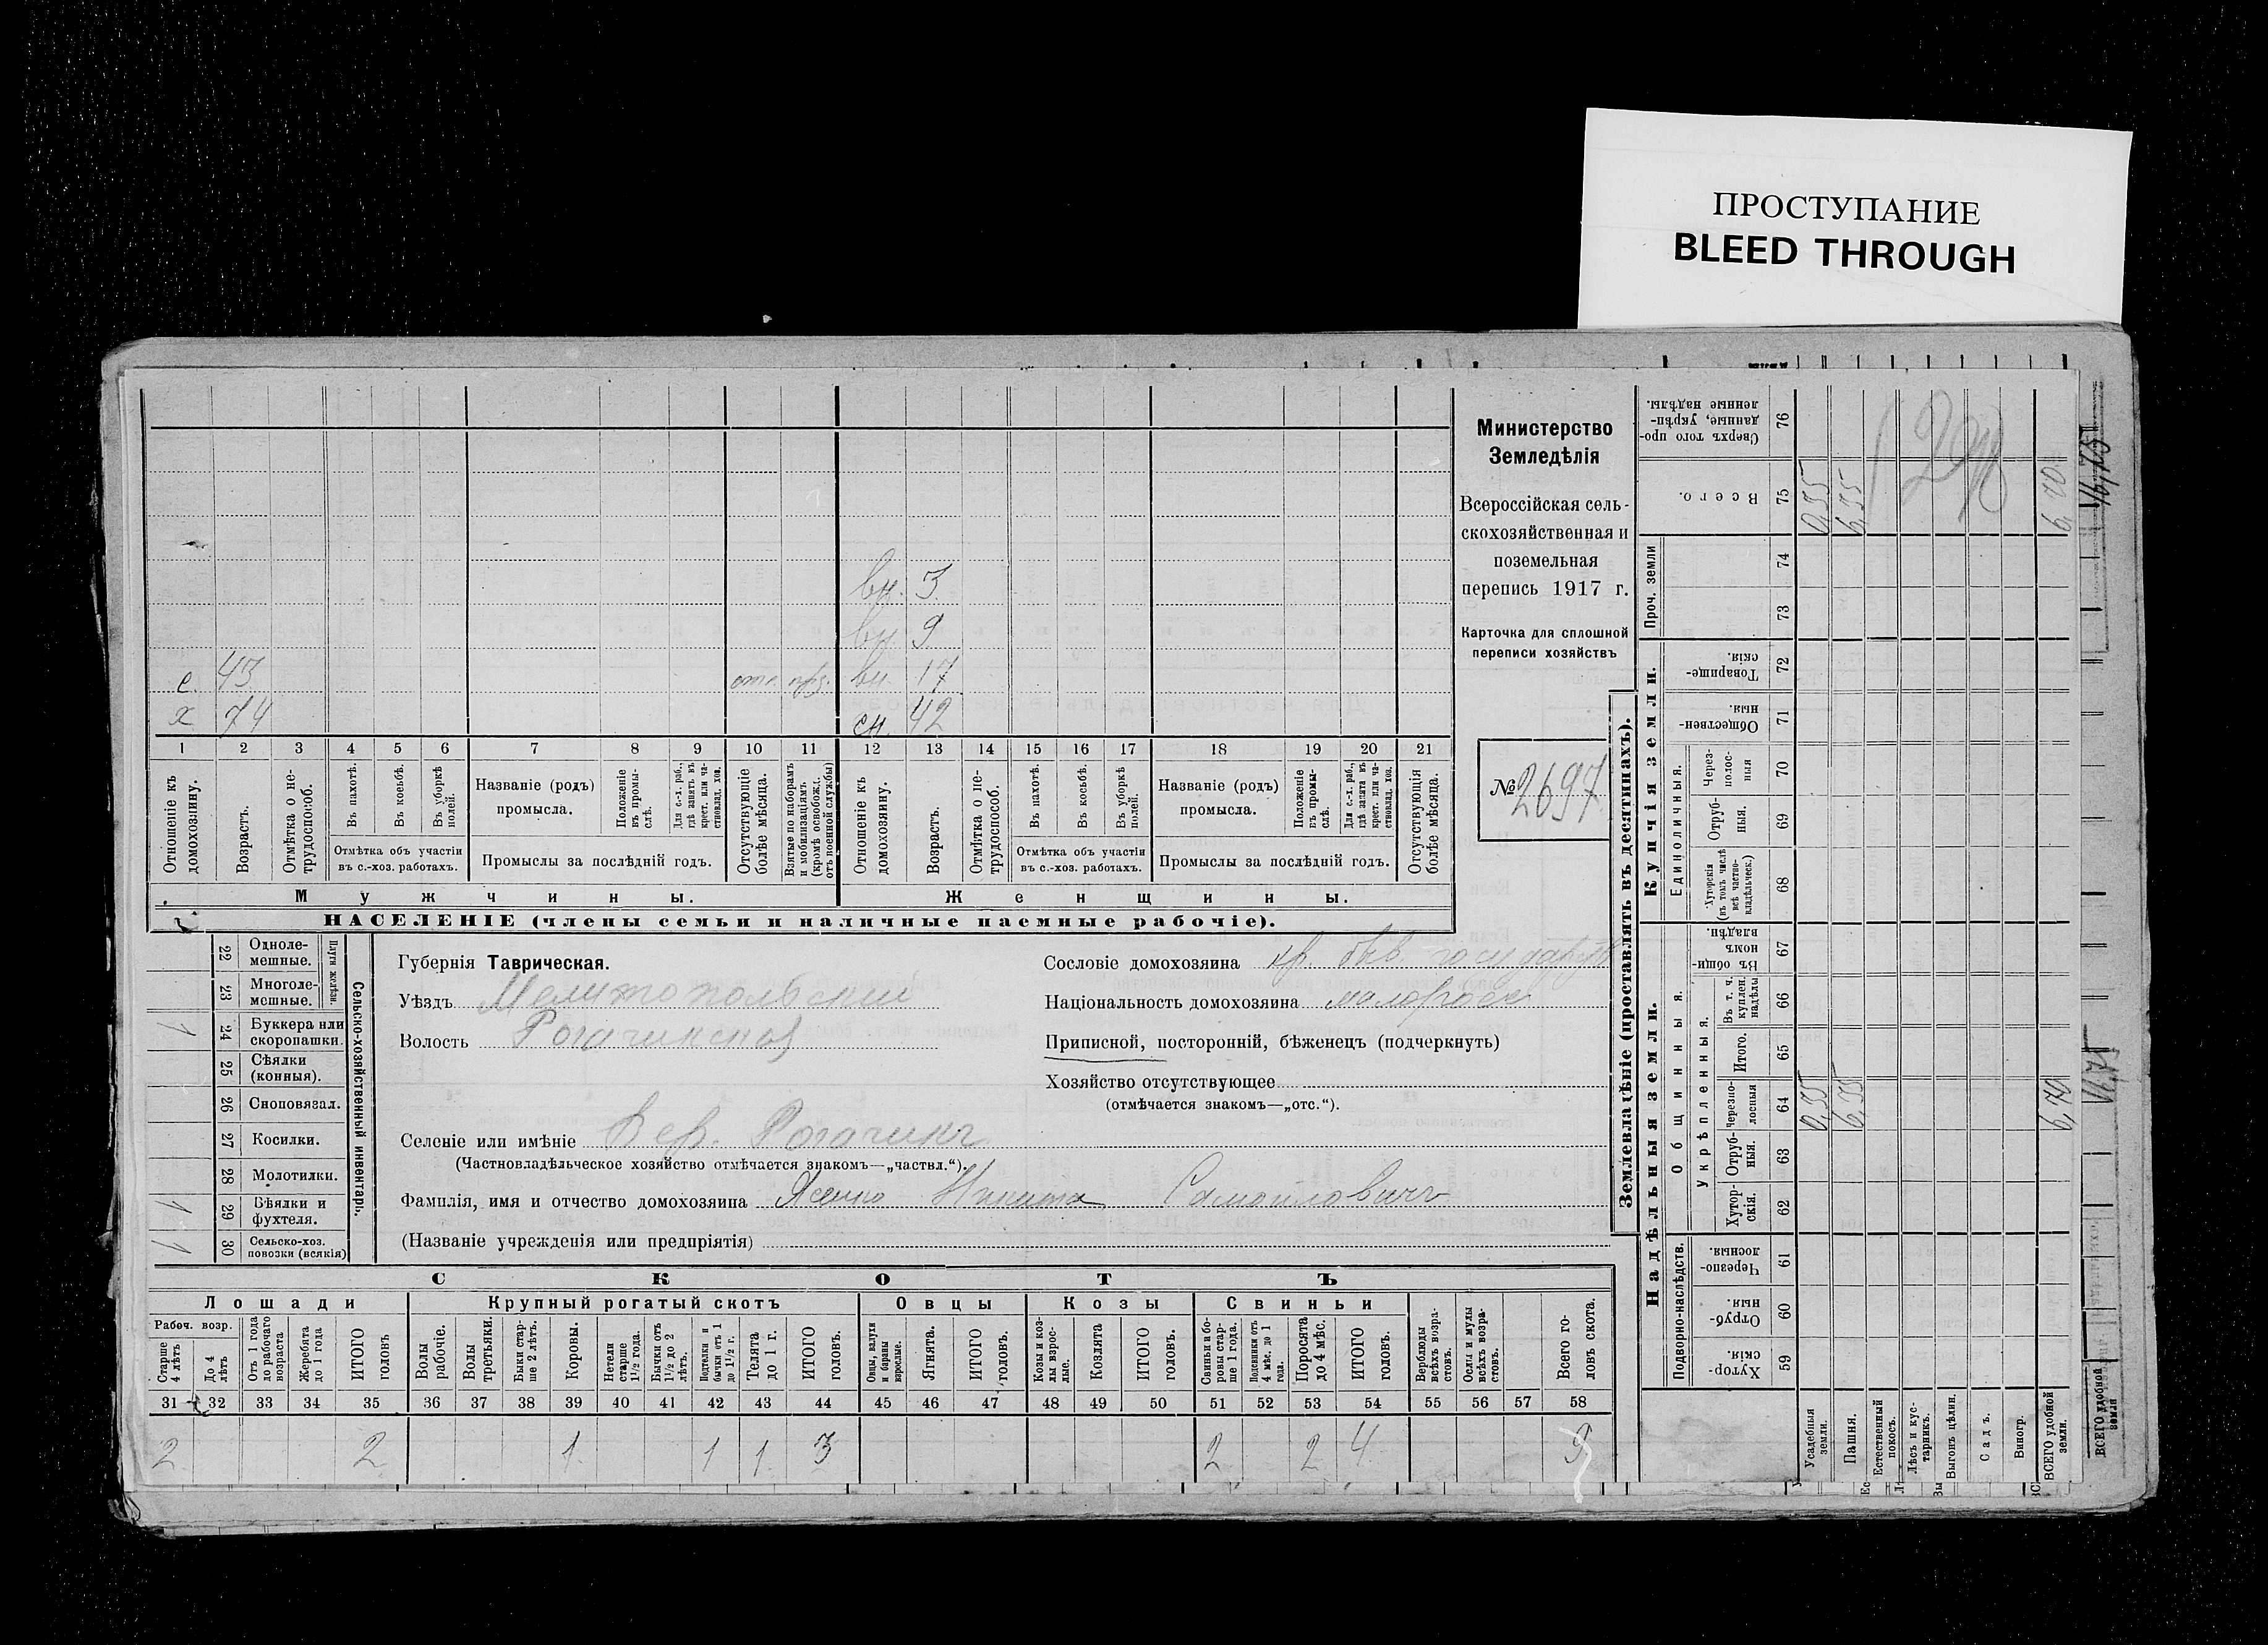 ПРОСТУПАНИЕ
BLEED THROUGH
Министерство
Земледѣлія
Всероссійская сель-
скохозяйственная и
поземельная
перепись 1917 г.
Карточка для сплошной
переписи хозяйствъ
№ 2697
вн. 3
вн. 9
с. 43 вн. 17
х 74 сн. 42
1 2 3 4 5 6 7 8 9 10 11 12 13 14 15 16 17 18 19 20 21
Отношеніе къ домохозяину.
Возрастъ.
Отмѣтка о не-трудоспособ.
Въ пахотѣ.
Въ косьбѣ.
Въ уборкѣ полей.
Отмѣтка объ участіи
въ с.-хоз. работахъ.
Названіе (родъ)
промысла.
Положеніе въ промы-слѣ.
Для с.-х. раб., гдѣ занятъ въ крест. или ча-стновлад. хоз.
Промыслы за послѣдній годъ.
Отсутствующіе болѣе мѣсяца.
Взятые по наборамъ и мобилизаціямъ (кромѣ освобожд. отъ военной службы)
Отношеніе къ домохозяину.
Возрастъ.
Отмѣтка о не-трудоспособ.
Въ пахотѣ.
Въ косьбѣ.
Въ уборкѣ полей.
Отмѣтка объ участіи
въ с.-хоз. работахъ.
Названіе (родъ)
промысла.
Положеніе въ промы-слѣ.
Для с.-х. раб., гдѣ занята въ крест. или ча-стновлад. хоз.
Промыслы за послѣдній годъ.
Отсутствующія болѣе мѣсяца.
Мужчины.
Женщины.
НАСЕЛЕНІЕ (члены семьи и наличные наемные рабочіе).
Сельско-хозяйственный инвентарь.
Плуги желѣзн.
22 Одноле-мешные.
23 Многоле-мешные.
1 24 Буккера или скоропашки.
25 Сѣялки (конныя).
26 Сноповязал.
27 Косилки.
28 Молотилки.
1 29 Вѣялки и фухтеля.
1 30 Сельско-хоз. повозки (всякія)
Губернія Таврическая.
Уѣздъ Мелитопольскій
Волость Рогачинская
Селеніе или имѣніе Вер. Рогачикъ
(Частновладѣльческое хозяйство отмѣчается знакомъ—„частвл.“).
Фамилія, имя и отчество домохозяина Ясенко Никита Самойловичъ
(Названіе учрежденія или предпріятія)
Сословіе домохозяина кр. быв. государств
Национальность домохозяина малоросс
Приписной, посторонній, бѣженецъ (подчеркнуть)
Хозяйство отсутствующее
(отмѣчается знакомъ—„отс.“).
СКОТЪ
Лошади Крупный рогатый скотъ Овцы Козы Свиньи
Рабоч. возр.
Старше 4 лѣтъ
До 4 лѣтъ
Отъ 1 года до рабочаго возраста
Жеребята до 1 года
ИТОГО головъ
Волы рабочіе.
Волы третьяки.
Быки стар-ше 2 лѣтъ.
Коровы.
Нетели старше 1½ года.
Бычки отъ 1½ до 2 лѣтъ.
Подтелки и бычки отъ 1 до 1½ г.
Телята до 1 г.
ИТОГО головъ.
Овцы, валухи и бараны взрослые.
Ягнята.
ИТОГО головъ.
Козы и коз-лы взрос-лые.
Козлята
ИТОГО головъ.
Свиньи и бо-ровы стар-ше 1 года.
Подсвинки отъ 4 мѣс. до 1 года.
Поросята до 4 мѣс.
ИТОГО головъ.
Верблюды всѣхъ возра-стовъ.
Ослы и мулы всѣхъ возра-стовъ.
Всего го-ловъ скота.
31 32 33 34 35 36 37 38 39 40 41 42 43 44 45 46 47 48 49 50 51 52 53 54 55 56 57 58
2 2 1 1 1 3 2 2 4 9
Землевладѣніе (проставлять въ десятинахъ).
Надѣльныя земли.
Купчія земли.
Проч. земли
Подворно-наслѣдств.
Общинныя.
Укрѣпленныя.
Единоличныя.
Хутор-скія. 59
Отруб-ныя 60
Черезпо-лосныя 61
Хутор-скія. 62
Отруб-ныя. 63
Черезпо-лосныя 64 0,35 6,35 6,70
Итого. 65
Въ т. ч. куплен. надѣлы 66
Въ общин-номъ владѣн. 67
Хуторскія (въ томъ числѣ всѣ частно-владѣльческ.) 68
Отруб-ныя. 69
Через-полос-ныя 70
Обществен-ныя. 71
Товарище-скія. 72
73
74
Всего. 75 0,35 6,35 6,70
Сверхъ того про-данные, укрѣп-ленные надѣлы. 76
Усадебныя земли.
Пашня.
Естественный покосъ.
Лѣсъ и кус-тарникъ.
Выгонъ цѣлин.
Садъ.
Виногр.
ВСЕГО удобной земли.
ВСЕГО удобной земли